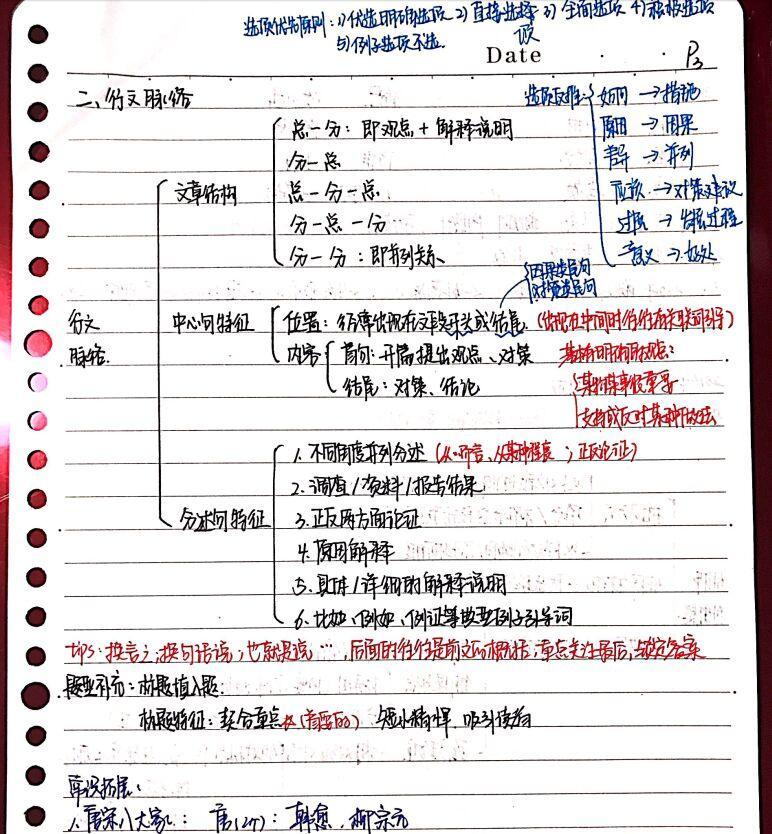 选项优选原则：1) 优选明确选项 2) 直接选择 3) 全面选项 4) 积极选项
5) 例子选项不选 议
Date P3
二、行文脉络
选项反推 如何 → 措施
总—分：即观点 + 解释说明
原因 → 因果
分—总
→ 并列
文章结构
总—分—总
应该 → 对策建议
分—总—分
过程 → 发展过程
分—分：即并列关系
意义 → 好处
因果类尾句
对策类尾句
行文脉络
中心句特征
位置：经常出现在文段开头或结尾 (出现在中间时往往有关联词引导)
内容
首句：开篇提出观点、对策
结尾：对策、结论
某种事很重要
支持或反对某种做法
分述句特征
1. 不同角度并列分述 (；正反论证)
2. 调查/资料/报告结果
3. 正反两方面论证
4. 原因解释
5. 具体/详细的解释说明
6. 比如、例如、例证等典型例子引导词
tips：换言之；换句话说；也就是说…，后面的往往是前文的概括；重点关注最后，锁定答案
题型补充：标题填入题：
标题特征：契合重点 (首要的) 短小精悍 吸引读者
常识拓展：
1. 唐宋八大家：唐(2个)：韩愈、柳宗元